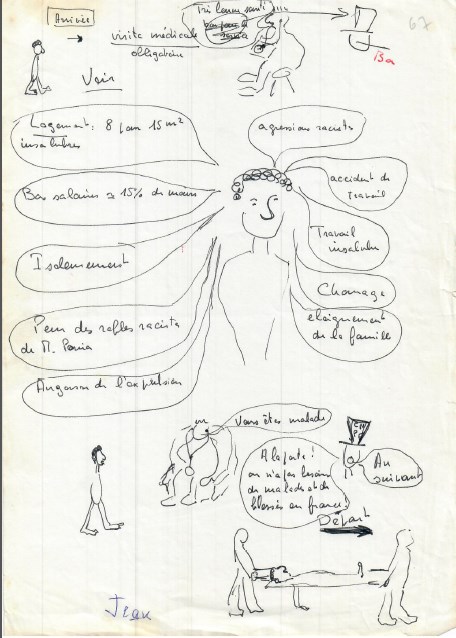 Arrivée
Très bonne santé !!!
67
visite médicale
obligatoire
Bon
Voir
Logement : 8 pour 15 m²
insalubres
agressions racistes
accident de
Travail
Bas salaires 15% de moins
Travail
insalubre
Isolement
Chomage
Peur des rafles racistes
de M.
eloignement
de la famille
Angoisse de l'expulsion
Vous êtes malade
CNPF
A la porte !
on n'a pas besoin
de malades et de
blessés en france !
Au
suivant
Départ
Jean